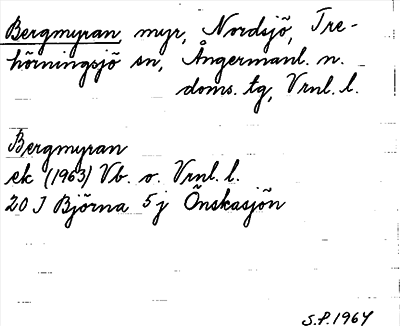 Bergmyran myr, Nordsjö, Tre-
hörningsjö sn, Ångermanl. n.
doms. tg, Vrnl. l.
Bergmyran
ek (1963) Vb. o. Vrnl. l.
20 J Björna 5 j Önskasjön
S.P. 1964